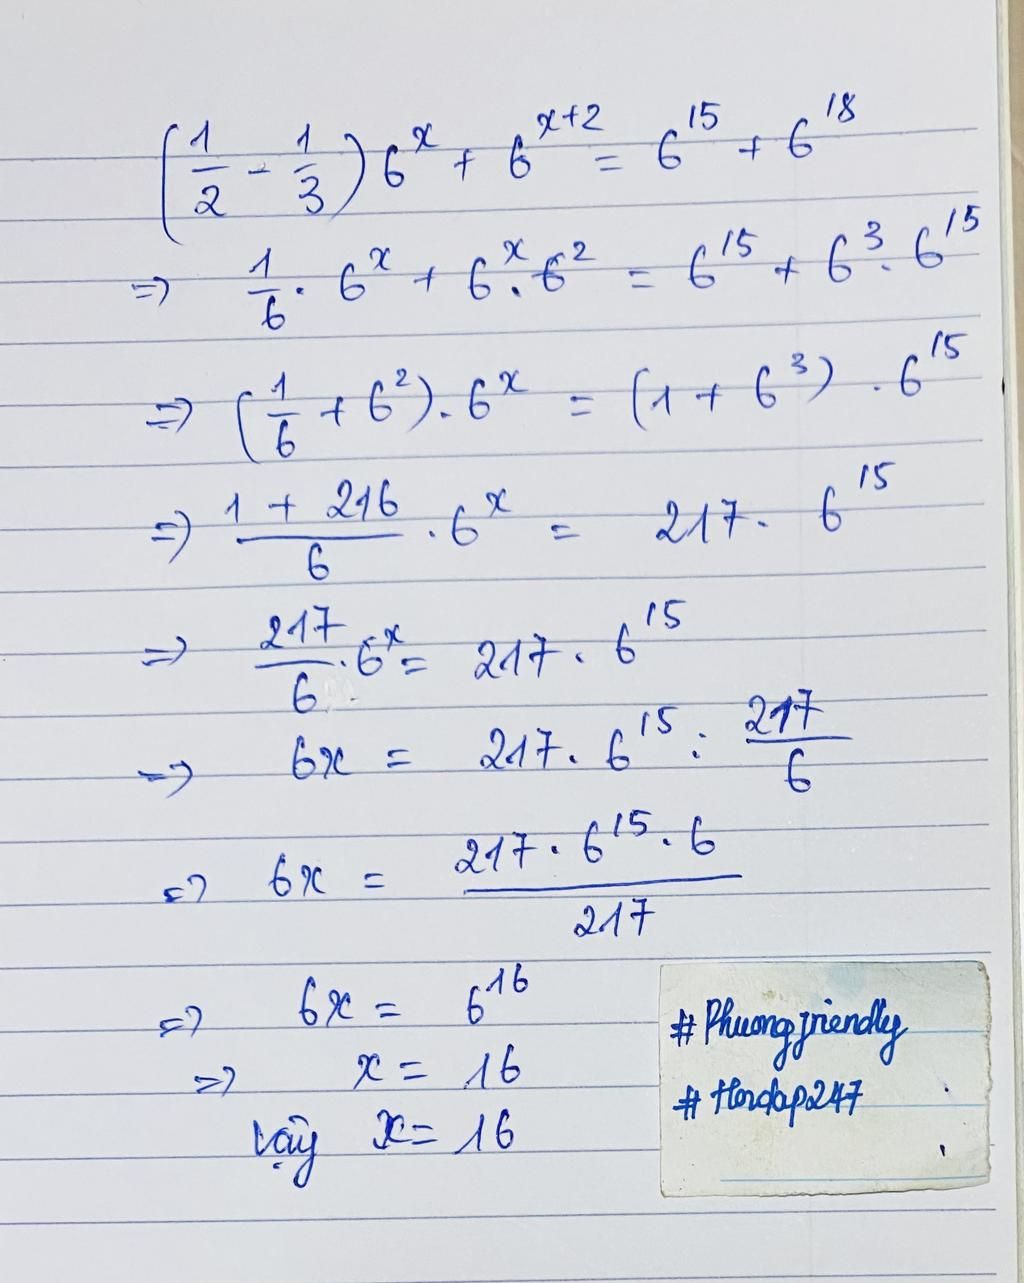 (1/2 - 1/3) 6^x + 6^(x+2) = 6^15 + 6^18
=> 1/6 . 6^x + 6^x . 6^2 = 6^15 + 6^3 . 6^15
=> (1/6 + 6^2) . 6^x = (1 + 6^3) . 6^15
=> (1 + 216)/6 . 6^x = 217 . 6^15
=> 217/6 . 6^x = 217 . 6^15
=> 6x = 217 . 6^15 : 217/6
=> 6x = (217 . 6^15 . 6)/217
=> 6x = 6^16
=> x = 16
Vậy x = 16
#Phuongfriendly
#Hoidap247